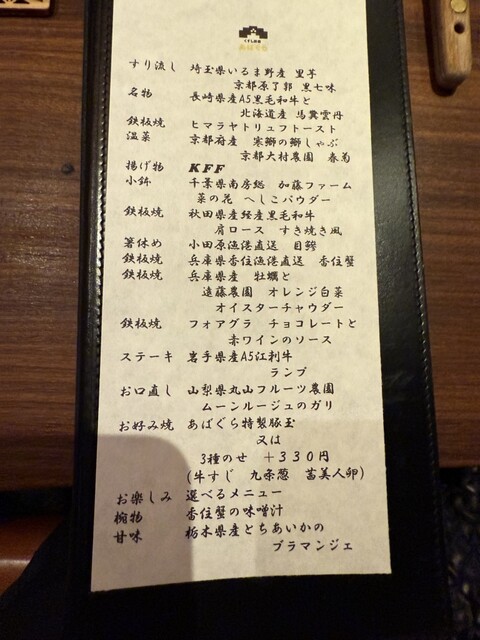 あばぐら
すり流し 埼玉県いるま野産 里芋
京都原了郭 黒七味
名物 長崎県産A5黒毛和牛と
北海道産 馬糞雲丹
鉄板焼 ヒマラヤトリュフトースト
温菜 京都府産 寒鰤の鰤しゃぶ
京都大村農園 春菊
揚げ物 KFF
小鉢 千葉県南房総 加藤ファーム
菜の花 へしこパウダー
鉄板焼 秋田県産経産黒毛和牛
肩ロース すき焼き風
箸休め 小田原漁港直送 目鯵
鉄板焼 兵庫県香住漁港直送 香住蟹
鉄板焼 兵庫県産 牡蠣と
遠藤農園 オレンジ白菜
オイスターチャウダー
鉄板焼 フォアグラ チョコレートと
赤ワインのソース
ステーキ 岩手県産A5江刺牛
ランプ
お口直し 山梨県丸山フルーツ農園
ムーンルージュのガリ
お好み焼 あばぐら特製豚玉
又は
3種のせ +330円
(牛すじ 九条葱 茜美人卵)
お楽しみ 選べるメニュー
椀物 香住蟹の味噌汁
甘味 栃木県産とちあいかの
ブラマンジェ